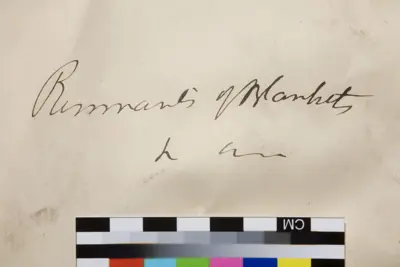 Remnants of Blankets
CM